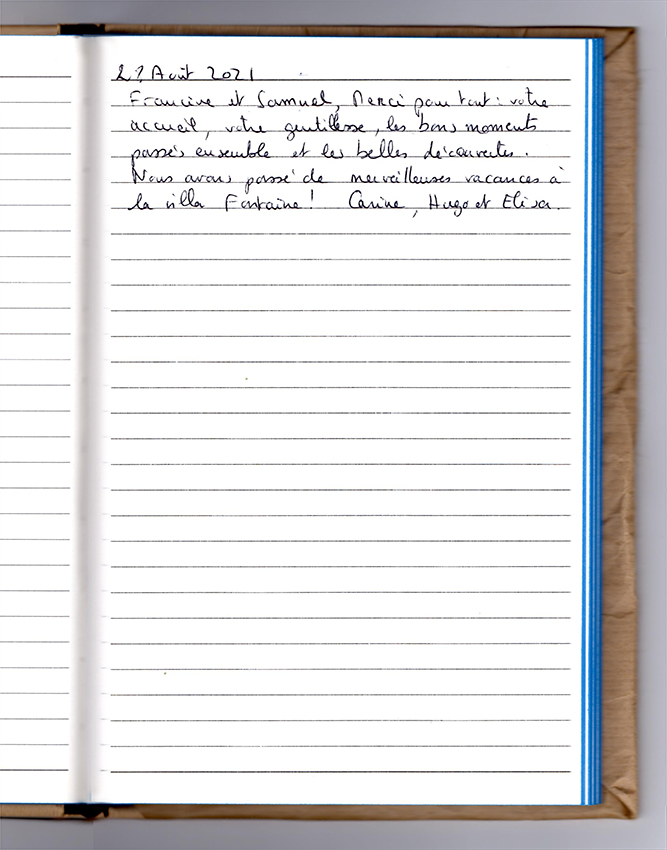 Août 2021
Francine et Samuel, Merci pour tout : votre
accueil, votre gentillesse, les bons moments
passés ensemble et les belles découvertes.
Nous avons passé de merveilleuses vacances à
la villa Fontaine ! Carine, Hugo et Elisa.